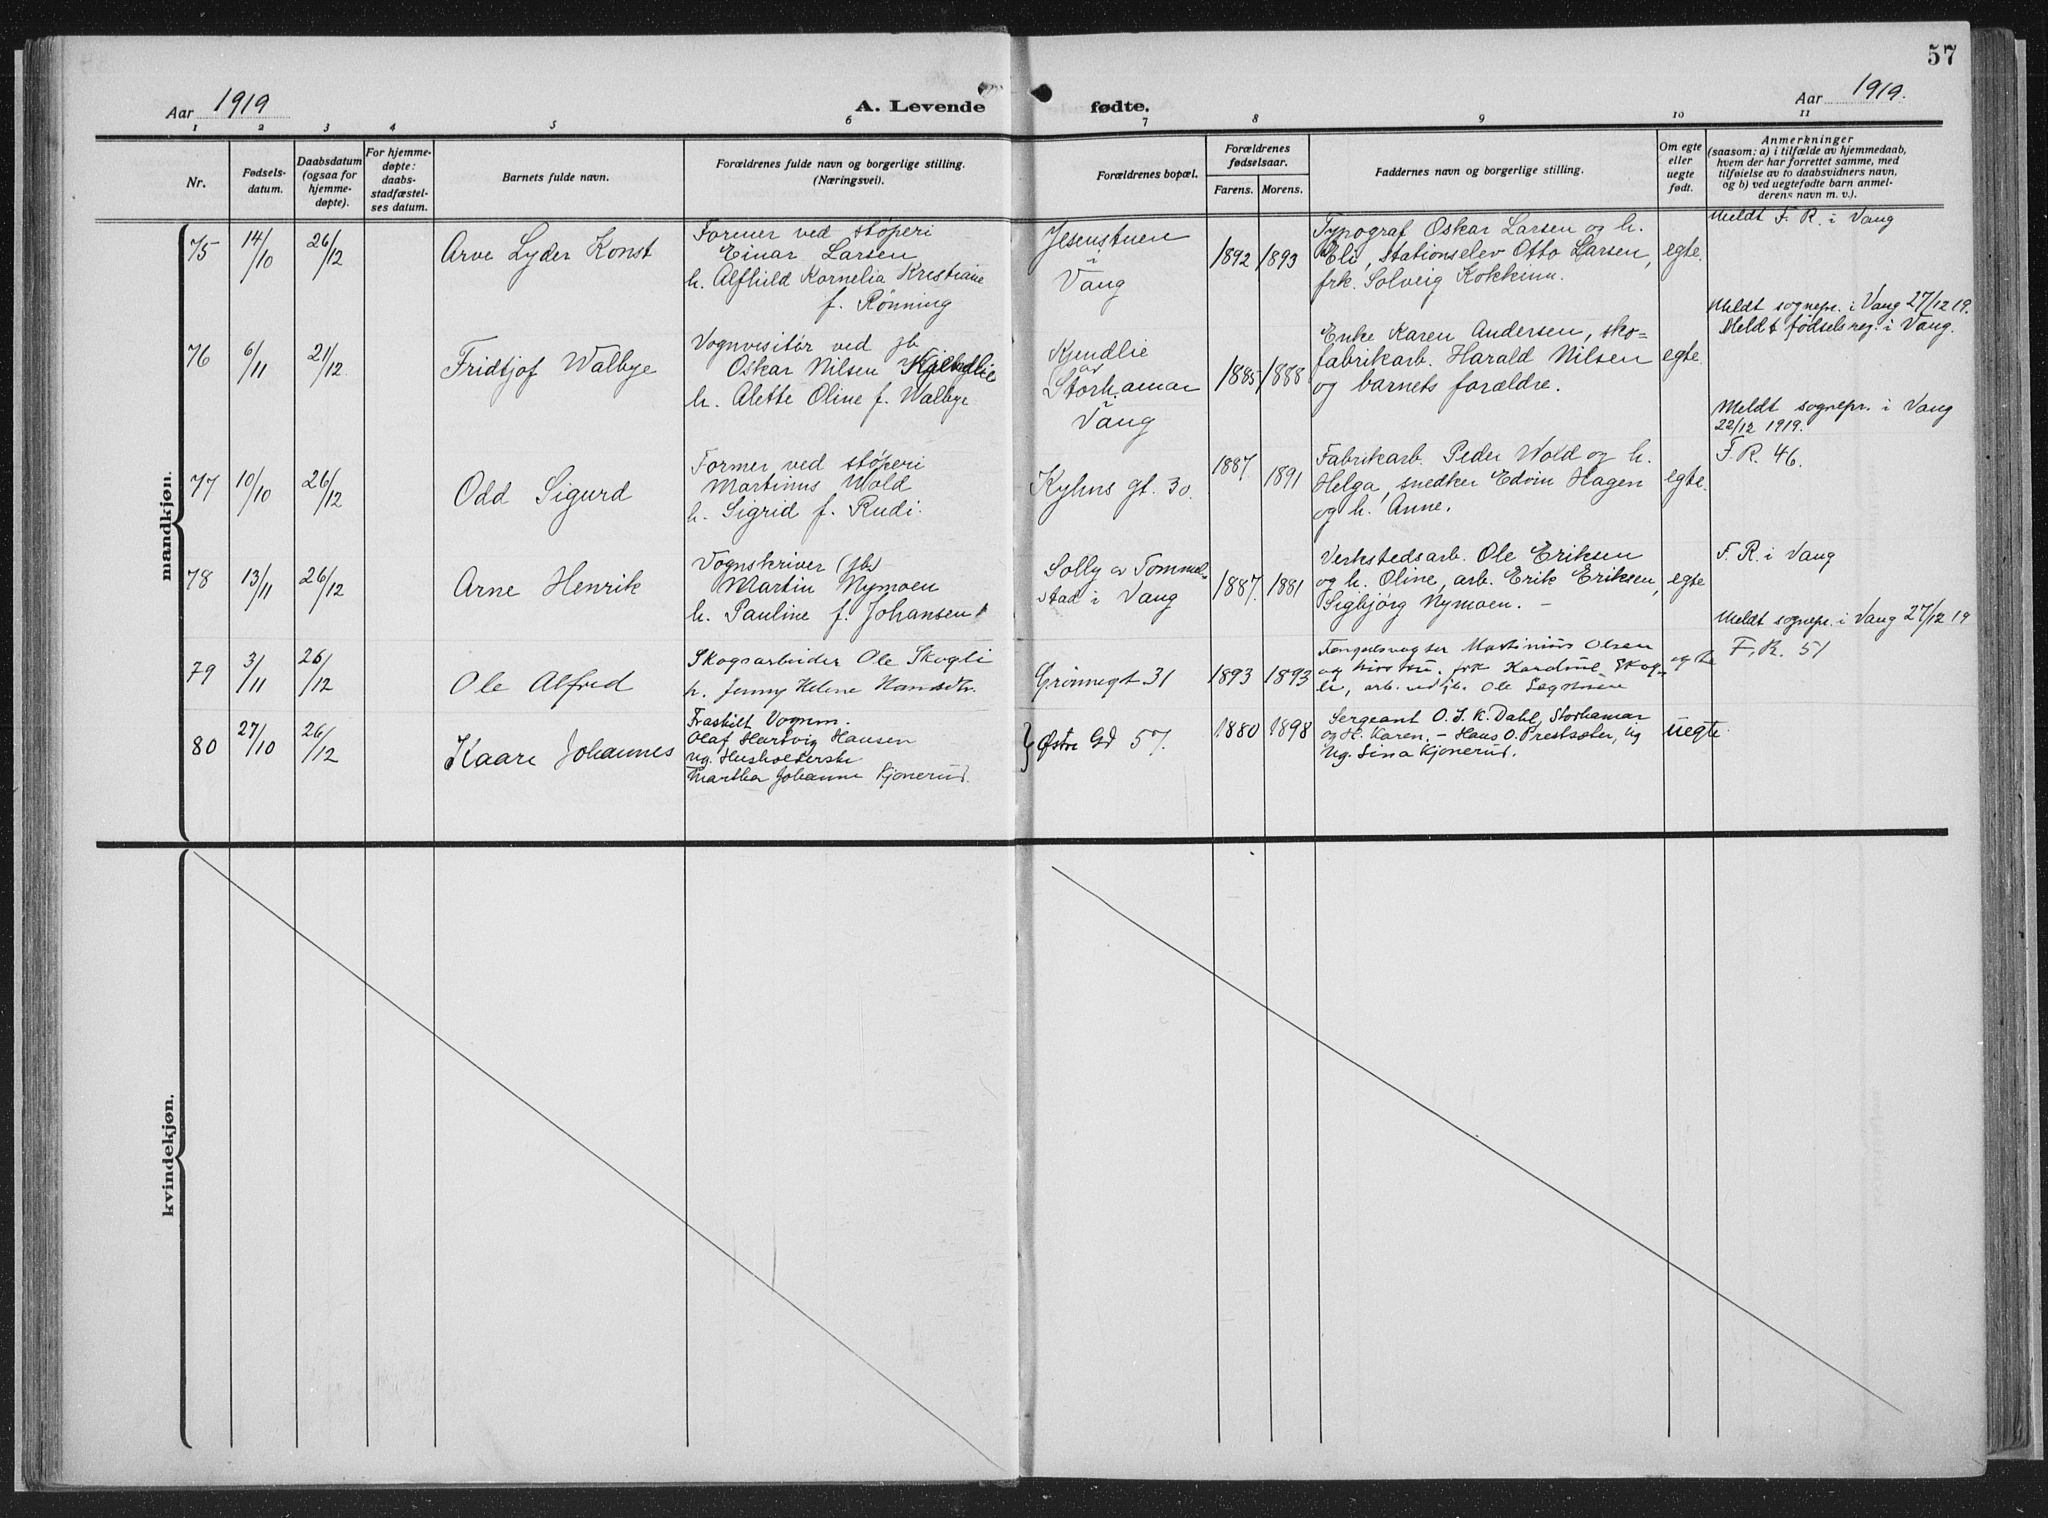 57
Aar 1919
A. Levende fødte.
Aar 1919.
1 2 3 4 5 6 7 8 9 10 11
Nr.
Fødsels-
datum.
Daabsdatum
(ogsaa for
hjemme-
døpte).
For hjemme-
døpte:
daabs-
stadfæstel-
ses datum.
Barnets fulde navn.
Forældrenes fulde navn og borgerlige stilling.
(Næringsvei).
Forældrenes bopæl.
Forældrenes
fødselsaar.
Farens. Morens.
Faddernes navn og borgerlige stilling.
Om egte
eller
uegte
født.
Anmerkninger
(saasom: a) i tilfælde av hjemmedaab,
hvem der har forrettet samme, med
tilføielse av to daabsvidners navn,
og b) ved uegtefødte barn anmel-
derens navn m. v.).
mandkjøn.
75
14/10
26/12
Arve Lyder Konst
Former ved støperi
Einar Larsen
h. Alfhild Kornelia Kristiane
f. Rönning
Jesenstuen
i
Vang
1892 1893
Typograf Oskar Larsen og h.
Eli, Stationselev Otto Larsen,
frk. Solveig Kokkinn.
egte.
Meldt F. R. i Vang
Meldt sognepr. i Vang 27/12 19.
76
6/11
21/12
Fridtjof Walbye
Vognvisitør ved jb
Oskar Nilsen Kjendlie
h. Alette Oline f. Walbye
Kjendlie
av
Storhamar
i
Vang
1885 1888
Enke Karen Andersen, sko-
fabrikarb. Harald Nilsen
og barnets forældre.
egte.
Meldt fødselsreg. i Vang.
Meldt sognepr. i Vang
22/12 1919.
77
10/10
26/12
Odd Sigurd
Former ved støperi
Martinus Wold
h. Sigrid f. Rudi.
Kyhns gt. 30.
1887. 1891
Fabrikarb. Peder Wold og h.
Helga, snedker Edvin Hagen
og h. Anne.
egte.
F. R. 46.
78
13/11
26/12
Arne Henrik
Vognskriver (jb)
Martin Nymoen
h. Pauline f. Johansen
Solly av Tommel-
stad i Vang
1887. 1881
Verkstedsarb. Ole Eriksen
og h. Oline, arb. Erik Eriksen,
Sigbjörg Nymoen. –
egte
F. R. i Vang
Meldt sognepr. i Vang 27/12 19
79
3/11
26/12
Ole Alfred
Skogsarbeider Ole Skogli
h. Jenny Helene Hansdtr.
Grönnegt 31
1893 1893
Martinius Olsen
og hustru, frk. Skog-
li, arb. ved jb. Ole
egte
F. R. 51
80
27/10
26/12
Kaare Johannes
Fraskilt Vognm.
Olaf Hartvig Hansen
Ug. Husholderske
Martha Johanne Kjonerud.
Østre Gd 57.
1880 1898
Sergeant O. J. K. Dahl, Storhamar
og H. Karen. – Hans O. Prestsæter, Ug
Ug. Lina Kjonerud.
uegte
kvindekjøn.